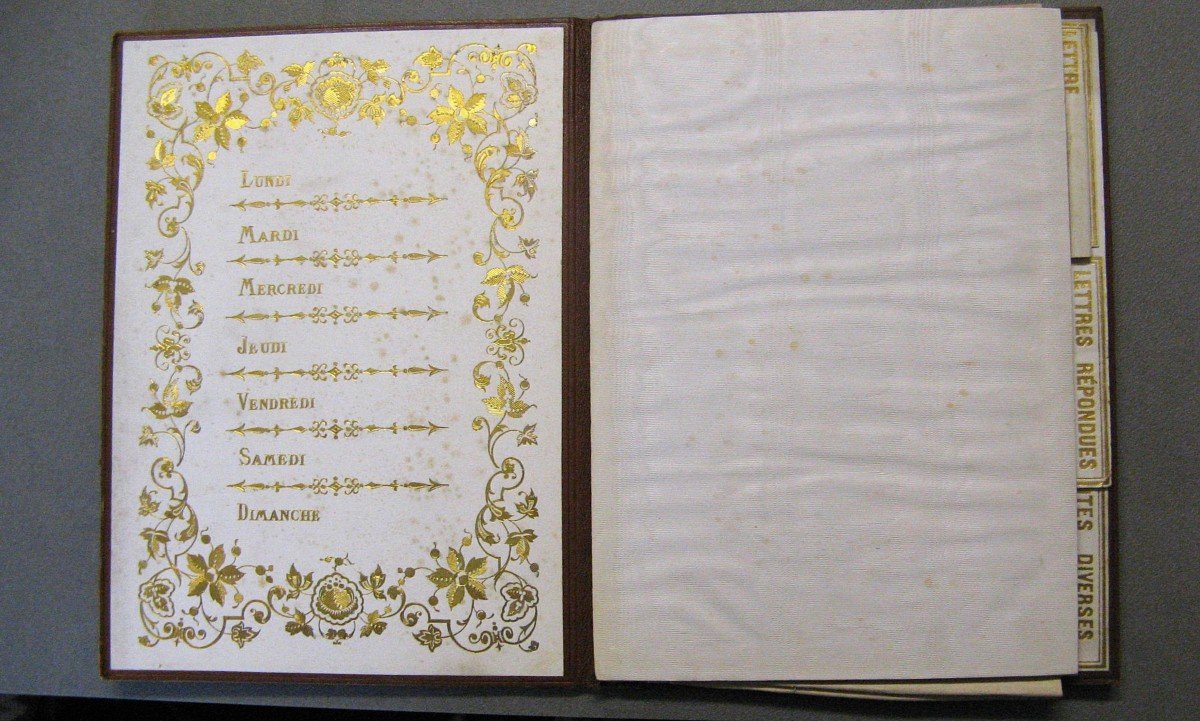 Lundi
Mardi
Mercredi
Jeudi
Vendredi
Samedi
Dimanche
LETTRE
LETTRES RÉPONDUES
TES DIVERSES